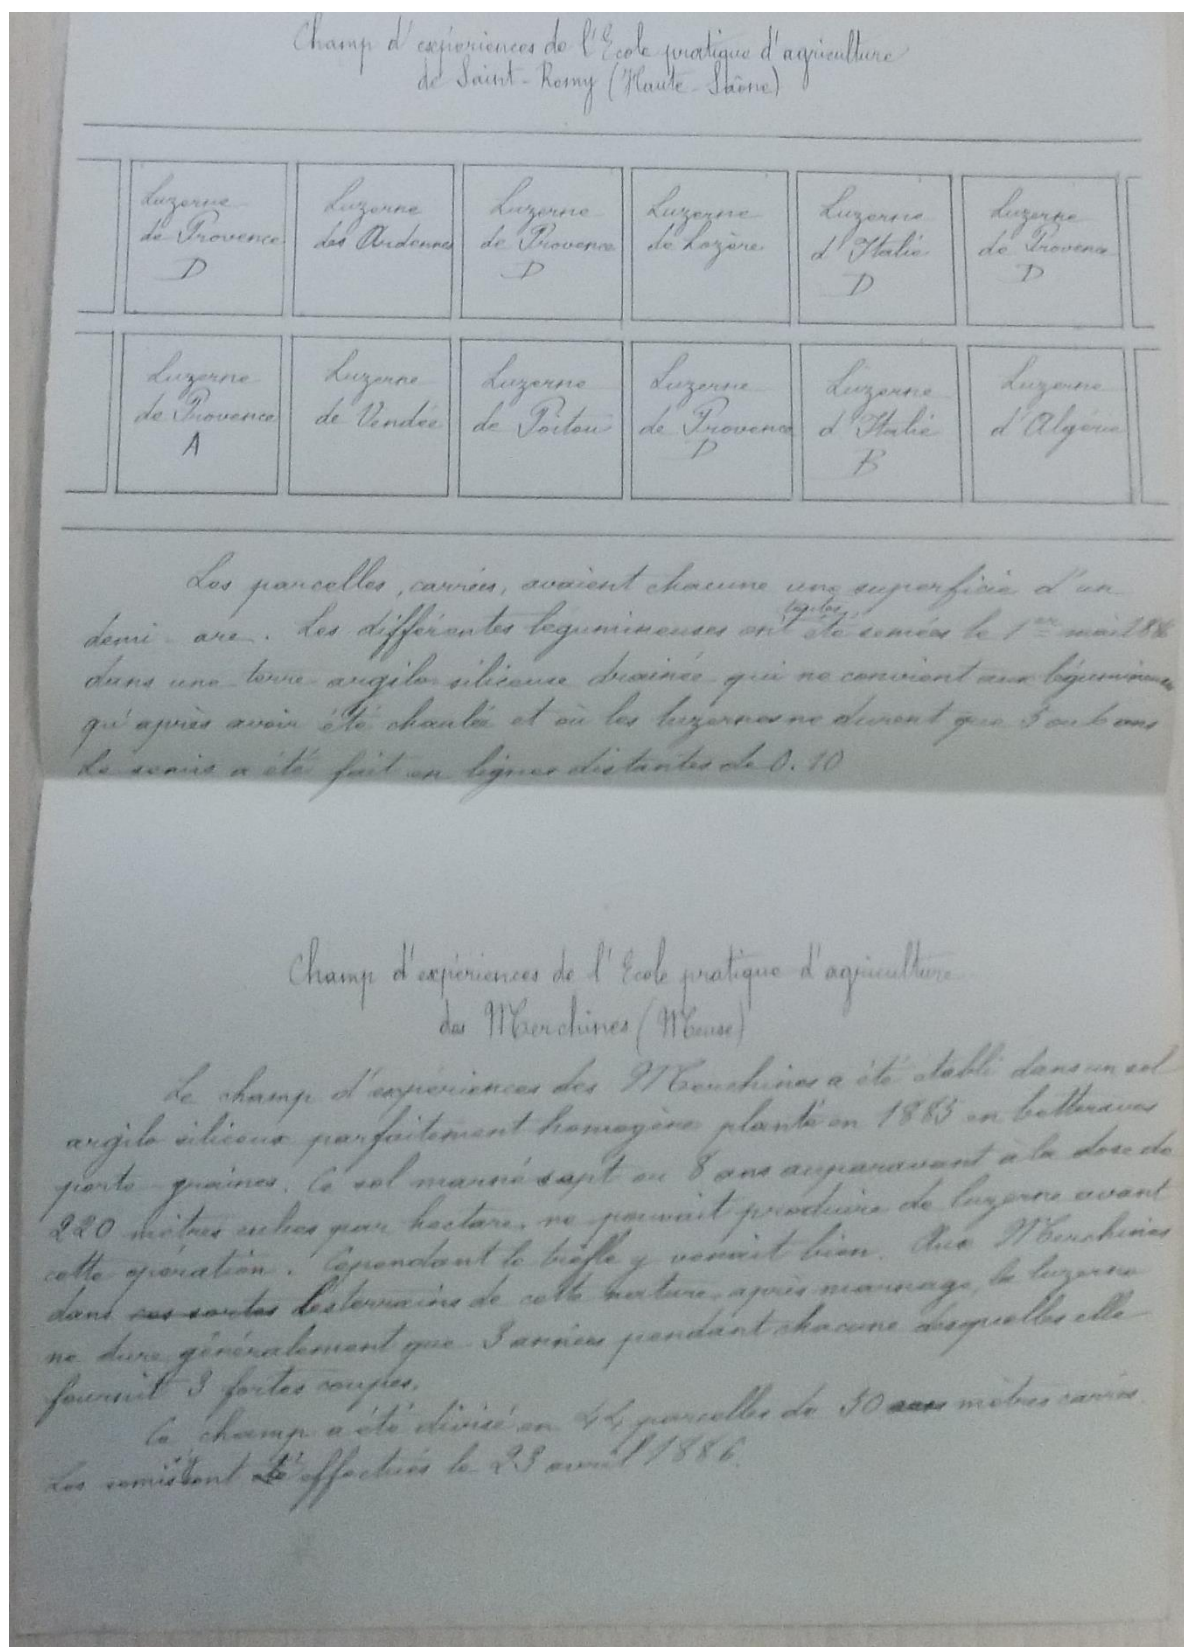 Champ d'expériences de l'Ecole pratique d'agriculture
de Saint-Remy (Haute-Saône)
Luzerne de Provence D | Luzerne des Ardennes | Luzerne de Provence D | Luzerne de Lozère | Luzerne d'Italie D | Luzerne de Provence D
Luzerne de Provence A | Luzerne de Vendée | Luzerne de Poitou | Luzerne de Provence D | Luzerne d'Italie B | Luzerne d'Algérie
Les parcelles, carrées, avaient chacune une superficie d'un
toutes
demi-are. Les différentes légumineuses ont été semées le 1er mai 1886
dans une terre argilo siliceuse drainée qui ne convient aux légumineuses
qu'après avoir été chaulée et où les luzernes ne durent que 5 ou 6 ans
Le semis a été fait en lignes distantes de 0.10
Champ d'expériences de l'Ecole pratique d'agriculture
des Merchines (Meuse)
Le champ d'expériences des Merchines a été établi dans un sol
argilo siliceux parfaitement homogène planté en 1885 en betteraves
porte-graines. Ce sol marné sept ou 8 ans auparavant à la dose de
220 mètres cubes par hectare, ne pouvait produire de luzerne avant
cette opération. Cependant le trèfle y venait bien. Aux Merchines
dans ces sortes les terrains de cette nature, après marnage, la luzerne
ne dure généralement que 3 années pendant chacune desquelles elle
fournit 3 fortes coupes.
Ce champ a été divisé en 44 parcelles de 50 mètres carrés.
Les semis ont été effectués le 23 avril 1886.